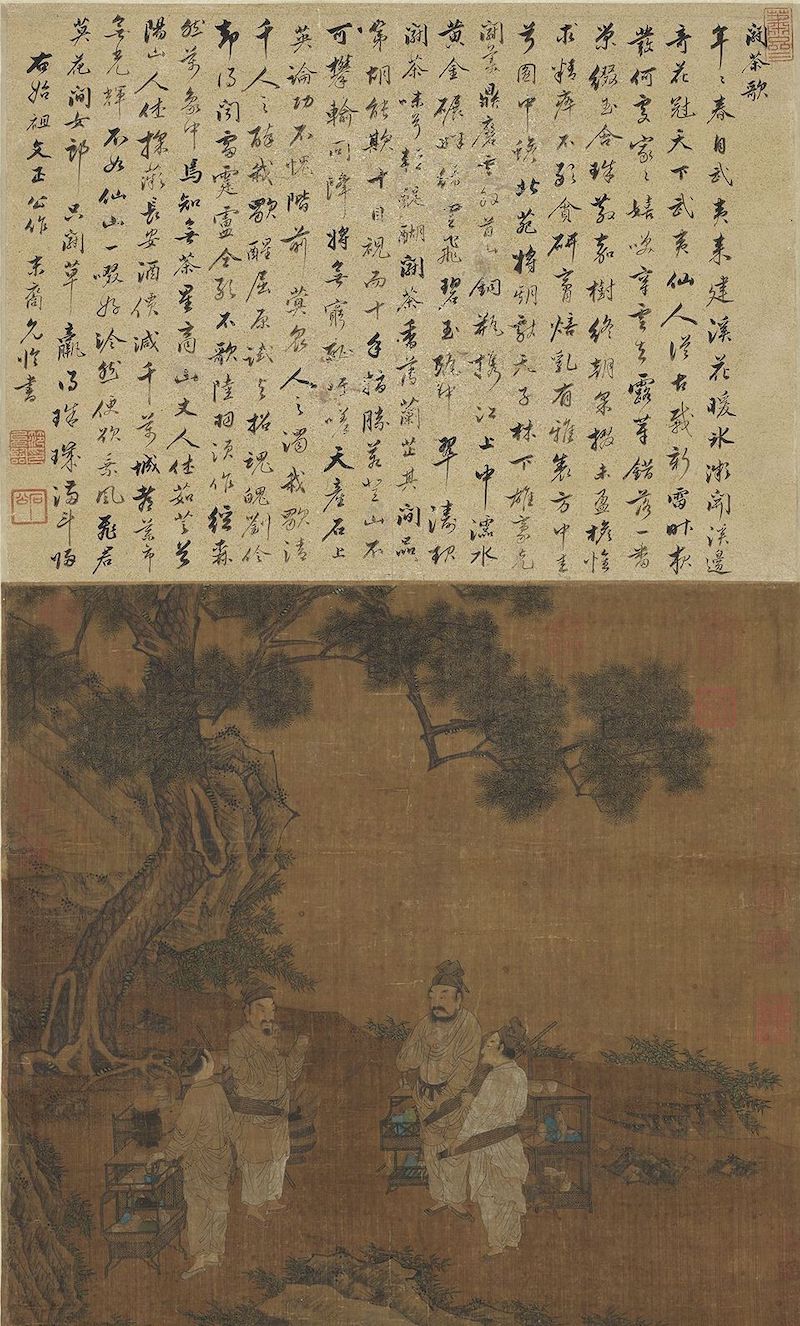 鬪茶歌
年〻春自武夷来建溪花暖氷漸開溪邊
奇花冠天下武夷仙人從古栽新雷昨夜
發何處家〻嬉咲穿雲去露芽錯落一番
榮綴玉含珠散嘉樹終朝采掇未盈襜惟
求精粹不敢貪研膏焙乳有雅製方中圭
兮圓中蟾北苑將期獻天子林下雄豪先
鬪美鼎磨雲外首山銅瓶攜江上中濡水
黄金碾畔緑塵飛碧玉甌中翠濤起
鬪茶味兮輕醍醐鬪茶香薄蘭芷其間品
第胡能欺十目視而十手指勝若登山不
可攀輸同降將無窮恥吁嗟天產石上
英論功不愧階前蓂衆人之濁我歌清
千人之醉我歌醒屈原試与招魂魄劉伶
却得聞雷霆盧仝敢不歌陸羽須作經森
然萬象中焉知無茶星商山丈人休茹芝首
陽山人休採薇長安酒價減千萬城都藥市
無光輝不如仙山一啜好泠然便欲乘風飛君
莫花間女郎只鬪草贏得珠璣滿斗歸
右始祖文正公作末裔允臨書